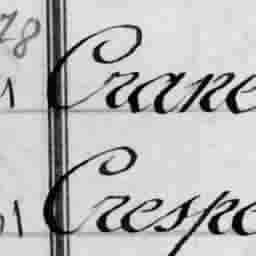 78
1 Crane
51 Crespe